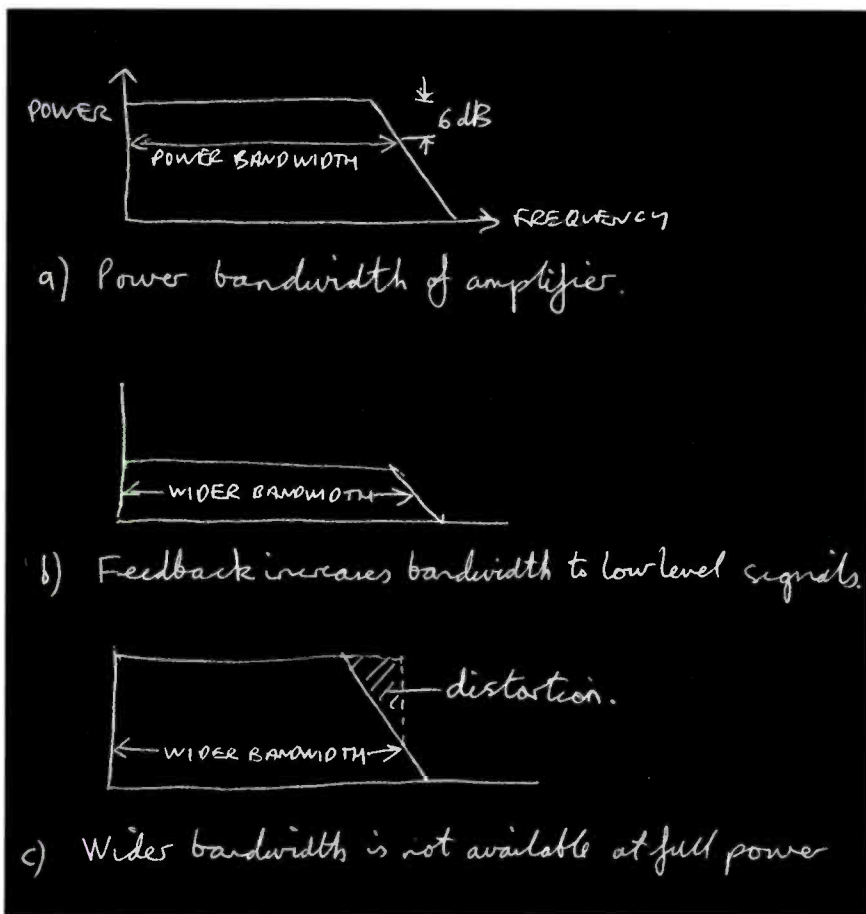 POWER
6 dB
POWER BANDWIDTH
FREQUENCY
a) Power bandwidth of amplifier.
WIDER BANDWIDTH
b) Feedback increases bandwidth to low level signals.
distortion.
WIDER BANDWIDTH
c) Wider bandwidth is not available at full power